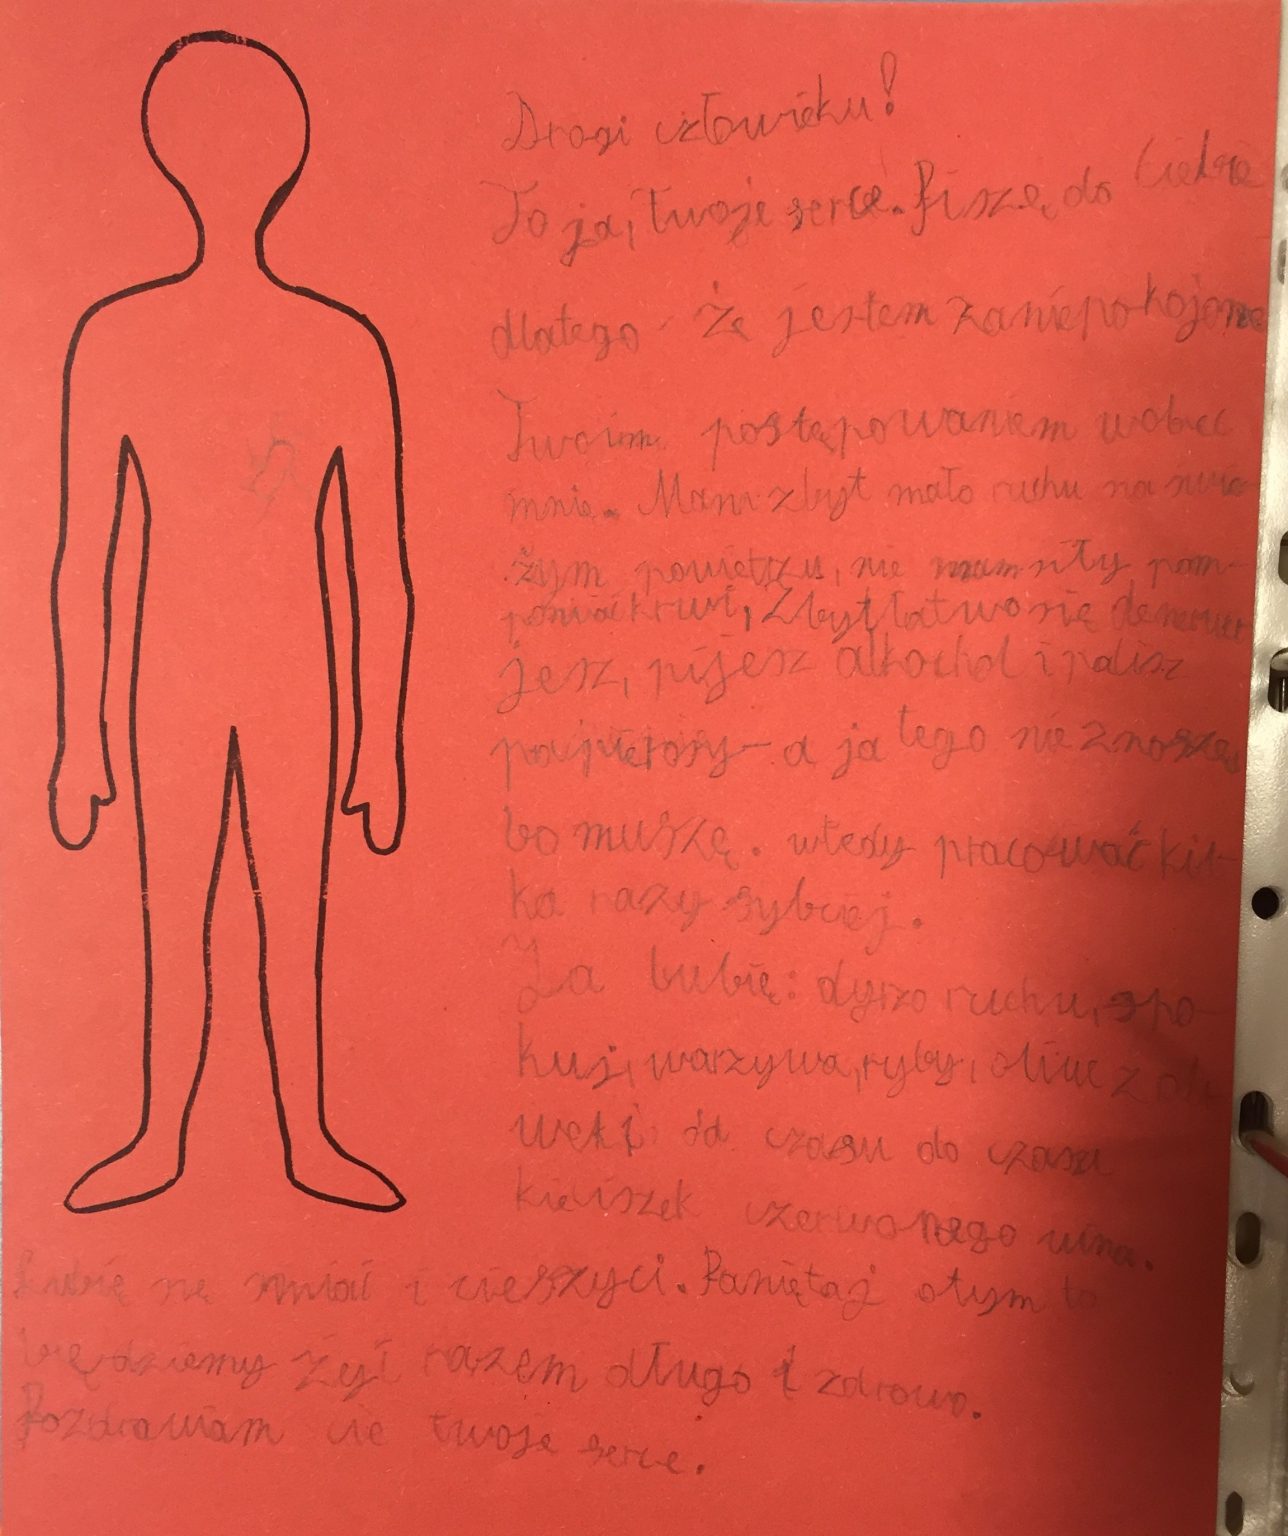 Drogi człowieku!
To ja, twoje serce. Piszę do Ciebie
dlatego że jestem zaniepokojone
Twoim postępowaniem wobec
mnie. Mam zbyt mało ruchu na świe-
żym powietrzu, nie mam siły pom-
pować krwi, Zbyt łatwo się denerwu
jesz, pijesz alkochol i palisz
papierosy - a ja tego nie znoszę,
bo muszę. wtedy pracować kil-
ka razy sybciej.
Ja lubię: dyrzo ruchu, spo-
kuj, warzywa, ryby, oliwę z oli
wek i od czasu do czasu
kieliszek czerwonego wina.
Lubię się śmiać i cieszyci. Pamiętaj otym to
będziemy żyć razem długo i zdrowo.
Pozdrawiam cie twoje serce.